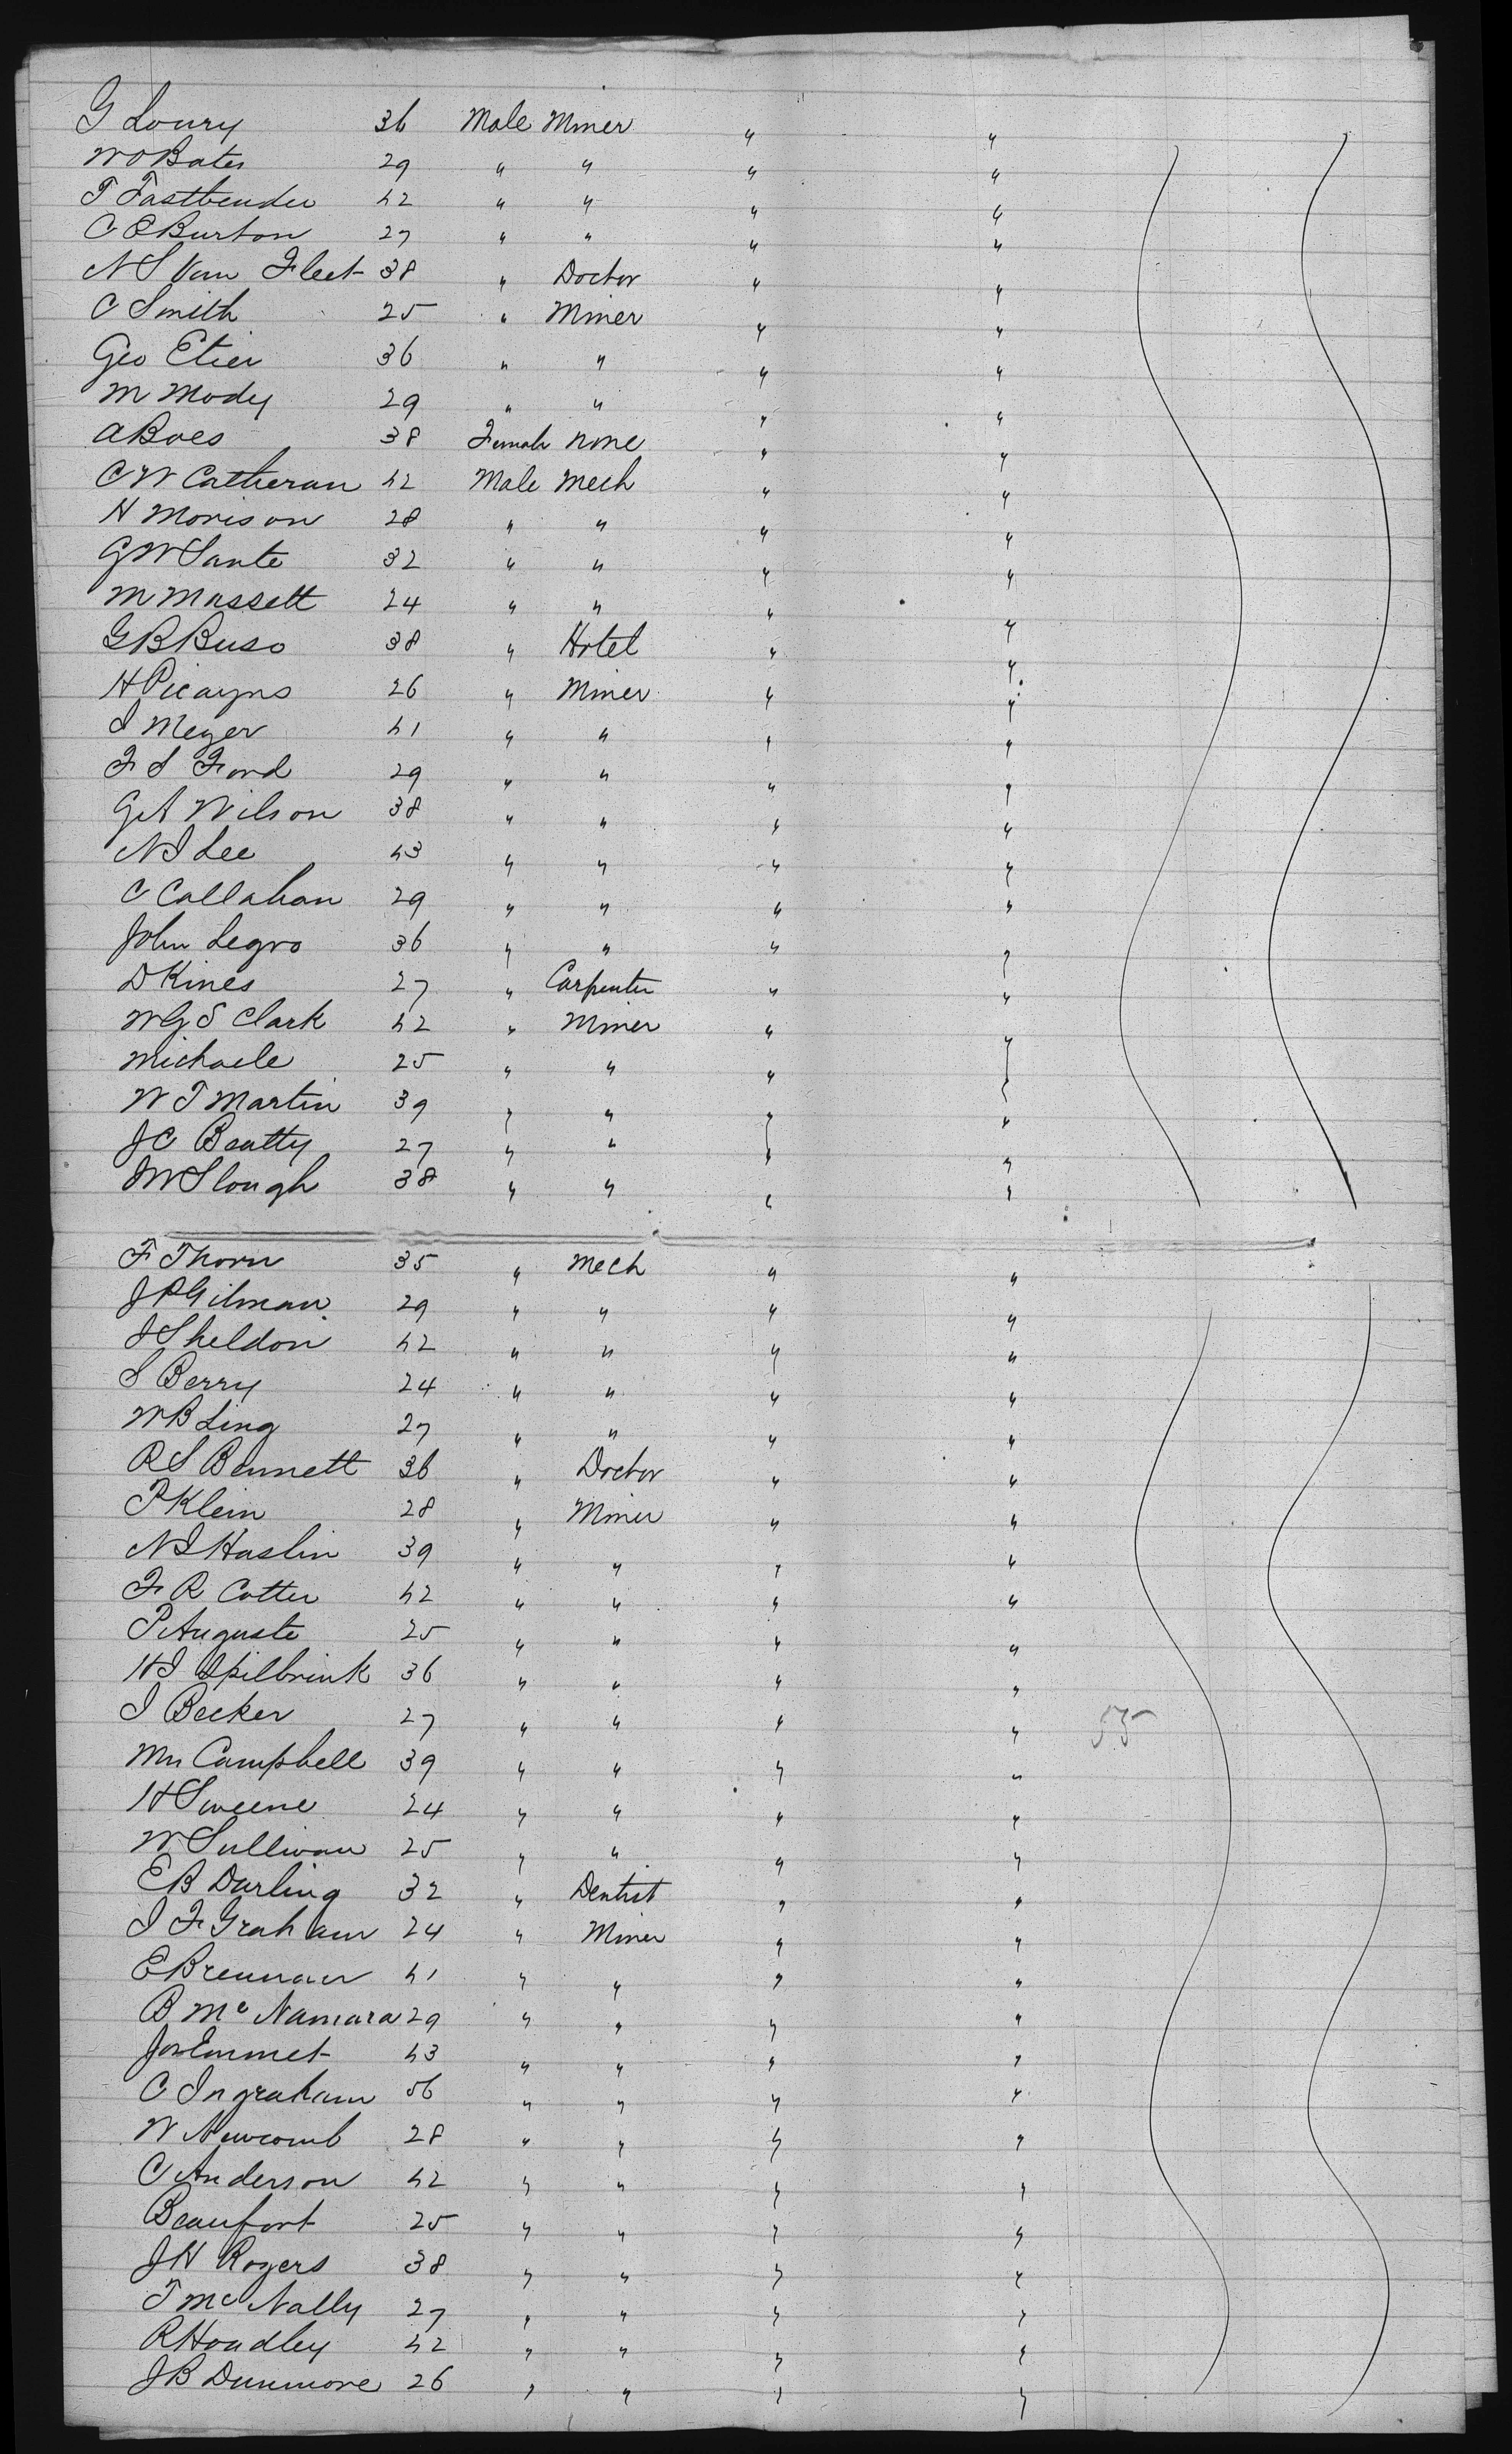 G Loury 36 Male Miner " "
W O Bates 29 " " " "
T Fastbender 42 " " " "
C E Burton 27 " " " "
N S Van Fleet 38 " Doctor " "
C Smith 25 " Miner " "
Geo Etier 36 " " " "
M Mody 29 " " " "
A Boes 38 Female none " "
C W Catheran 42 Male Mech " "
H Morison 28 " " " "
G W Sante 32 " " " "
M Massett 24 " " " "
G B Buso 38 " Hotel " "
H Picayns 26 " Miner " "
I Meyer 41 " " " "
F S Ford 29 " " " "
G A Wilson 38 " " " "
N I Lee 43 " " " "
C Callahan 29 " " " "
John Legro 36 " " " "
D Kines 27 " Carpenter " "
W G S Clark 42 " Miner " "
Michaele 25 " " " "
W T Martin 39 " " " "
J C Beatty 27 " " " "
J W Slough 38 " " " "
F Thorn 35 " Mech " "
J P Gilman 29 " " " "
I Sheldon 42 " " " "
S Berry 24 " " " "
W B Ling 27 " " " "
R S Bennett 36 " Doctor " "
P Klein 28 " Miner " "
N I Haslin 39 " " " "
F R Cotter 42 " " " "
P Auguste 25 " " " "
H I Spilbrink 36 " " " "
I Becker 27 " " " " 55
Mn Campbell 39 " " " "
H Sweene 24 " " " "
W Sullivan 25 " " " "
E B Darling 32 " Dentist " "
I F Graham 24 " Miner " "
E Brennan 41 " " " "
B McNamara 29 " " " "
Jos Emmet 43 " " " "
C Ingraham 56 " " " "
W Newcomb 28 " " " "
C Anderson 42 " " " "
Beaufort 25 " " " "
J H Rogers 38 " " " "
T McNally 27 " " " "
R Hoadley 42 " " " "
J B Dunmore 26 " " " "